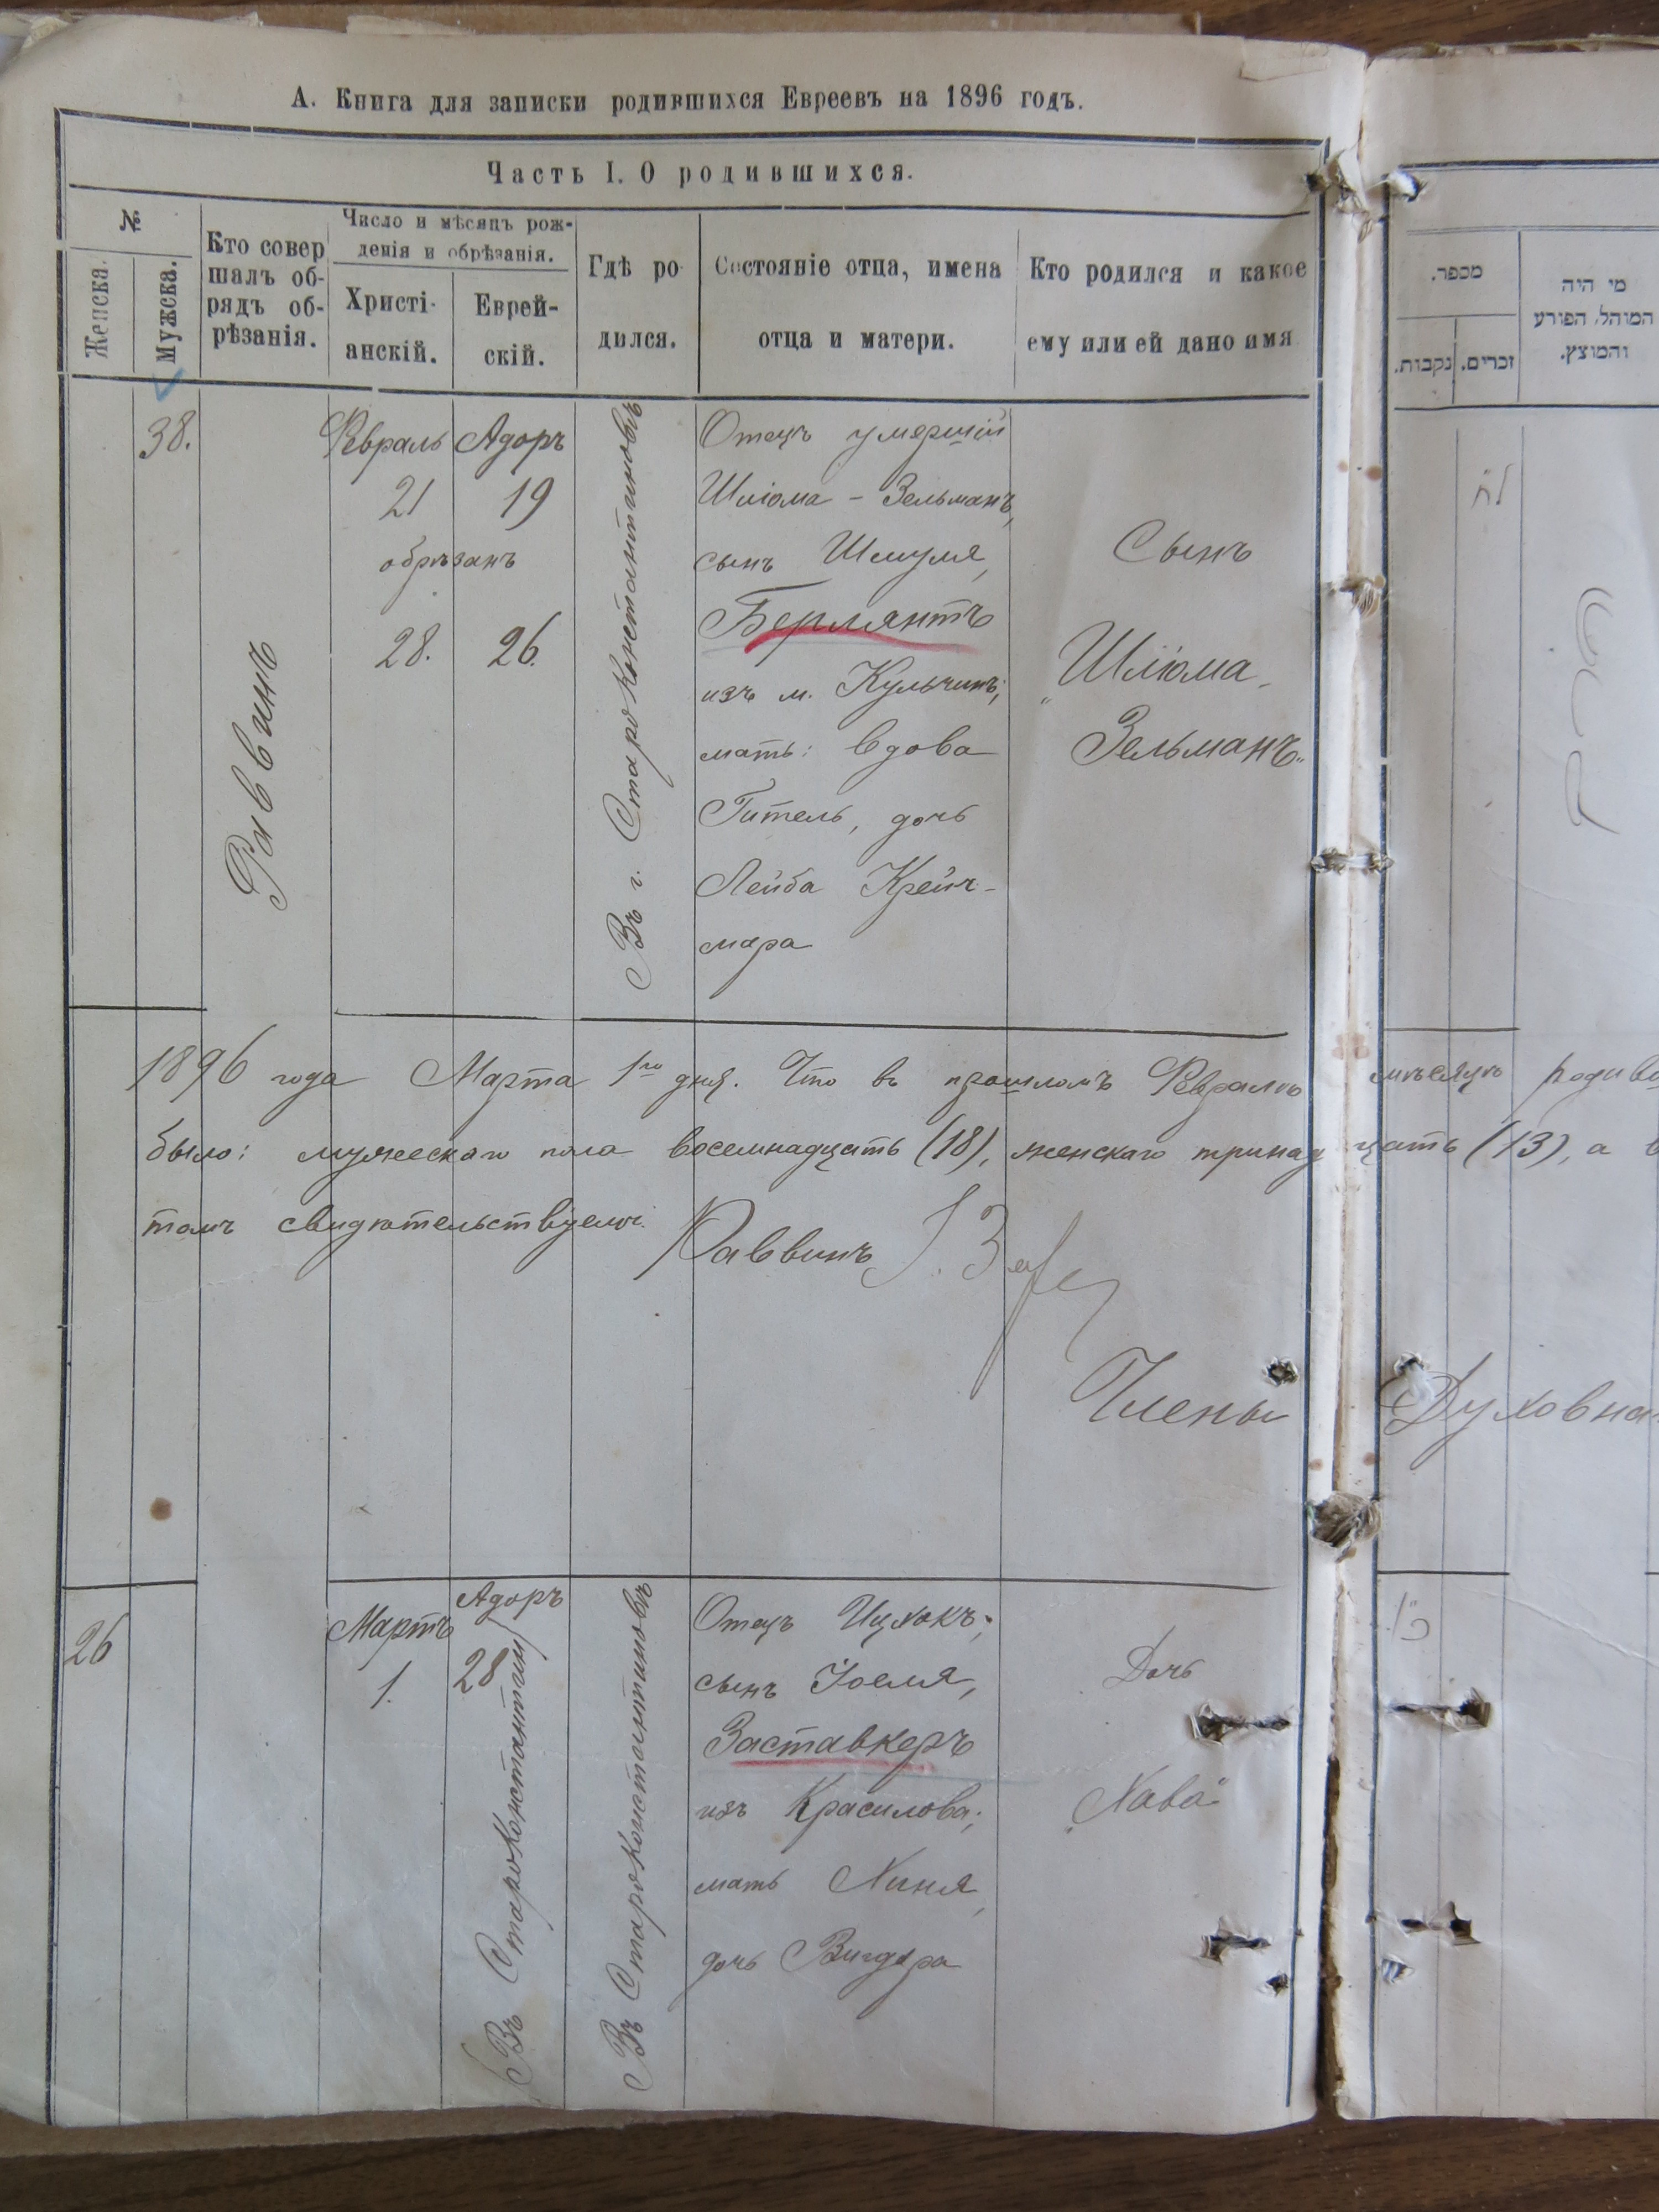 А. Книга для записки родившихся Евреевъ на 1896 годъ.
Часть I. О родившихся.
№
Женска.
Мужска.
Кто совер
шалъ об-
рядъ об-
рѣзанія.
Число и мѣсяцъ рож-
денія и обрѣзанія.
Христі-
анскій.
Еврей-
скій.
Гдѣ ро-
дился.
Состояніе отца, имена
отца и матери.
Кто родился и какое
ему или ей дано имя
מספר.
נקבות.
זכרים.
מי היה
המוהל, הפורע
והמוצץ.
38.
Раввинъ
Февраль
21
обрѣзанъ
28.
Адоръ
19
26.
Въ г. Староконстантиновъ
Отецъ умершій
Шліома - Зельманъ,
сынъ Шмуля,
Берлянтъ
изъ м. Кульчинъ;
мать: вдова
Гитель, дочь
Лейба Крейч-
мара
Сынъ
„Шліома-
Зельманъ“
לח
1896 года Марта 1го дня. Что въ прошломъ Февралѣ мѣсяцѣ
было: мужескаго пола восемнадцать (18), женскаго тринадцать (13), а в
томъ свидѣтельствуемъ. Раввинъ
Члены Духовна
26
Мартъ
1.
Адоръ
28
Въ Староконстантин
Въ Староконстантиновѣ
Отецъ Ицхокъ,
сынъ Іоеля,
Заставкеръ
изъ Красилова;
мать Хиня,
дочь Вигдора
Дочь
„Хава“
כו